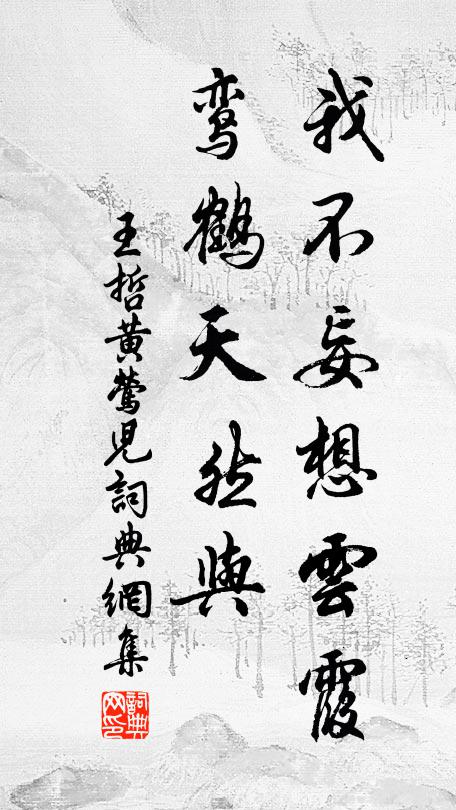 我不妄想雲霞
鸾鶴天然與
王哲黄鶯児詞典網集
詞典网印